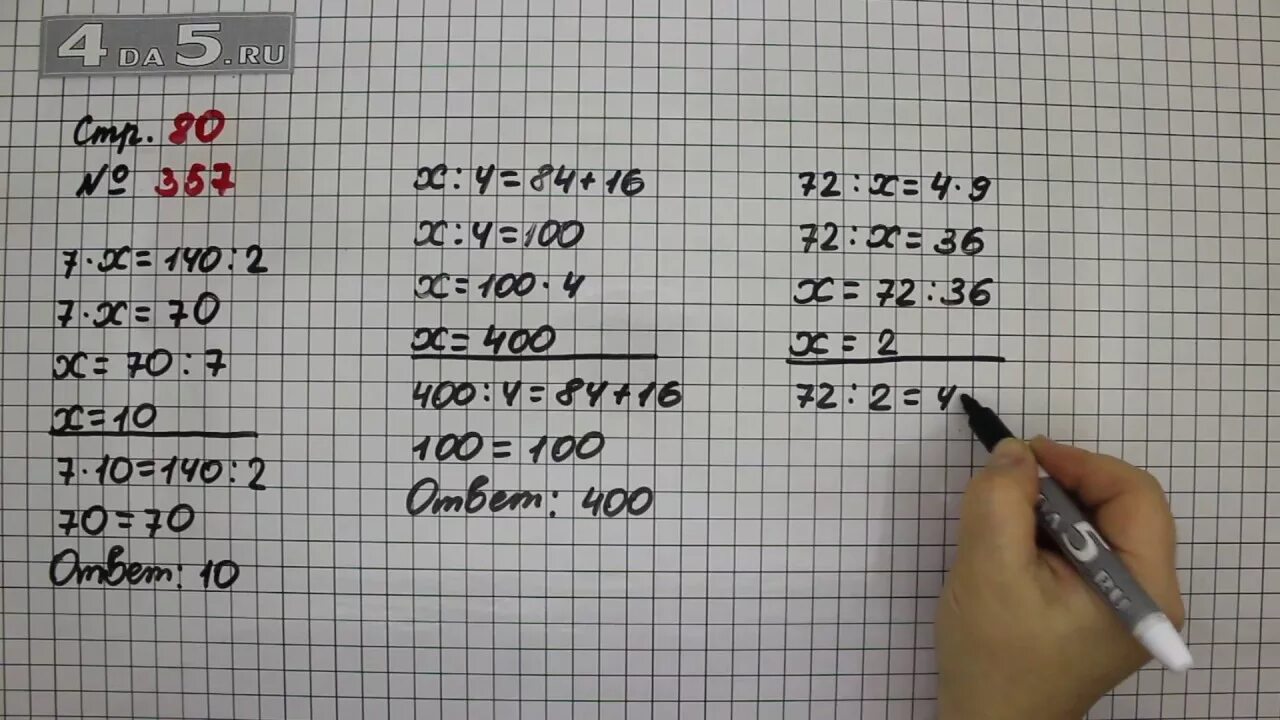 4DA5.RU
Стр. 80
№ 357
7·x=140:2
7·x=70
x=70:7
x=10
7·10=140:2
70=70
Ответ: 10
x:4=84+16
x:4=100
x=100·4
x=400
400:4=84+16
100=100
Ответ: 400
72:x=4·9
72:x=36
x=72:36
x=2
72:2=4
5